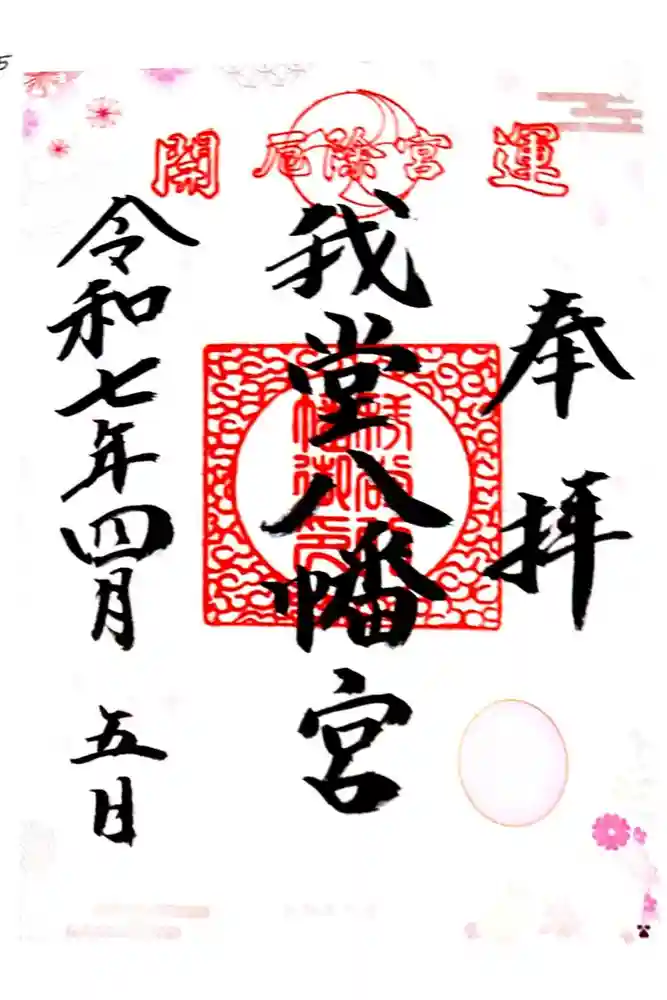 開 厄除宮 運
奉拝
我堂八幡宮
令和七年四月 五日